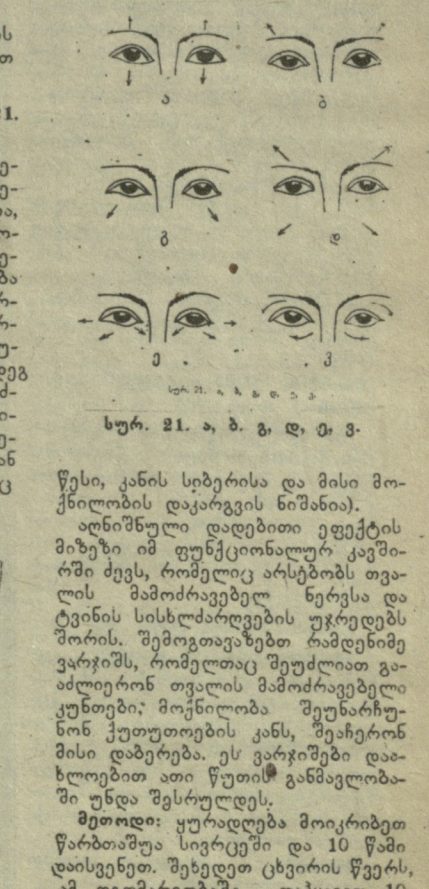 ა
ბ
გ
დ
ე
ვ
სურ. 21. ა, ბ, გ, დ, ე, ვ.
სურ. 21. ა, ბ. გ, დ, ე, ვ.
წესი, კანის სიბერისა და მისი მო-
ქნილობის დაკარგვის ნიშანია).
აღნიშნული დადებითი ეფექტის
მიზეზი იმ ფუნქციონალურ კავში-
რში ძევს, რომელიც არსებობს თვა-
ლის მამოძრავებელ ნერვსა და
ტვინის სისხლძარღვების უჯრედებს
შორის. შემოგთავაზებთ რამდენიმე
ვარჯიშს, რომელთაც შეუძლიათ გა-
აძლიერონ თვალის მამოძრავებელი
კუნთები; მოქნილობა შეუნარჩუ-
ნონ ქუთუთოების კანს, შეაჩერონ
მისი დაბერება. ეს ვარჯიშები დაა-
ხლოებით ათი წუთის განმავლობა-
ში უნდა შესრულდეს.
მეთოდი: ყურადღება მოიკრიბეთ
წარბთაშუა სივრცეში და 10 წამი
დაისვენეთ. შეხედეთ ცხვირის წვერს,